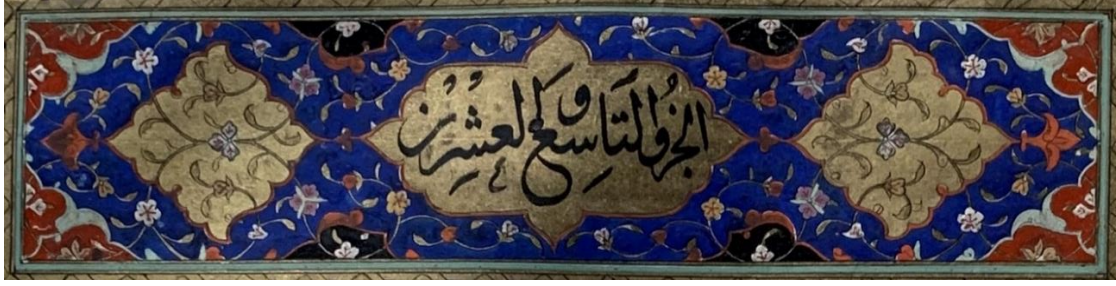 الجزو التاسع و لعشرين